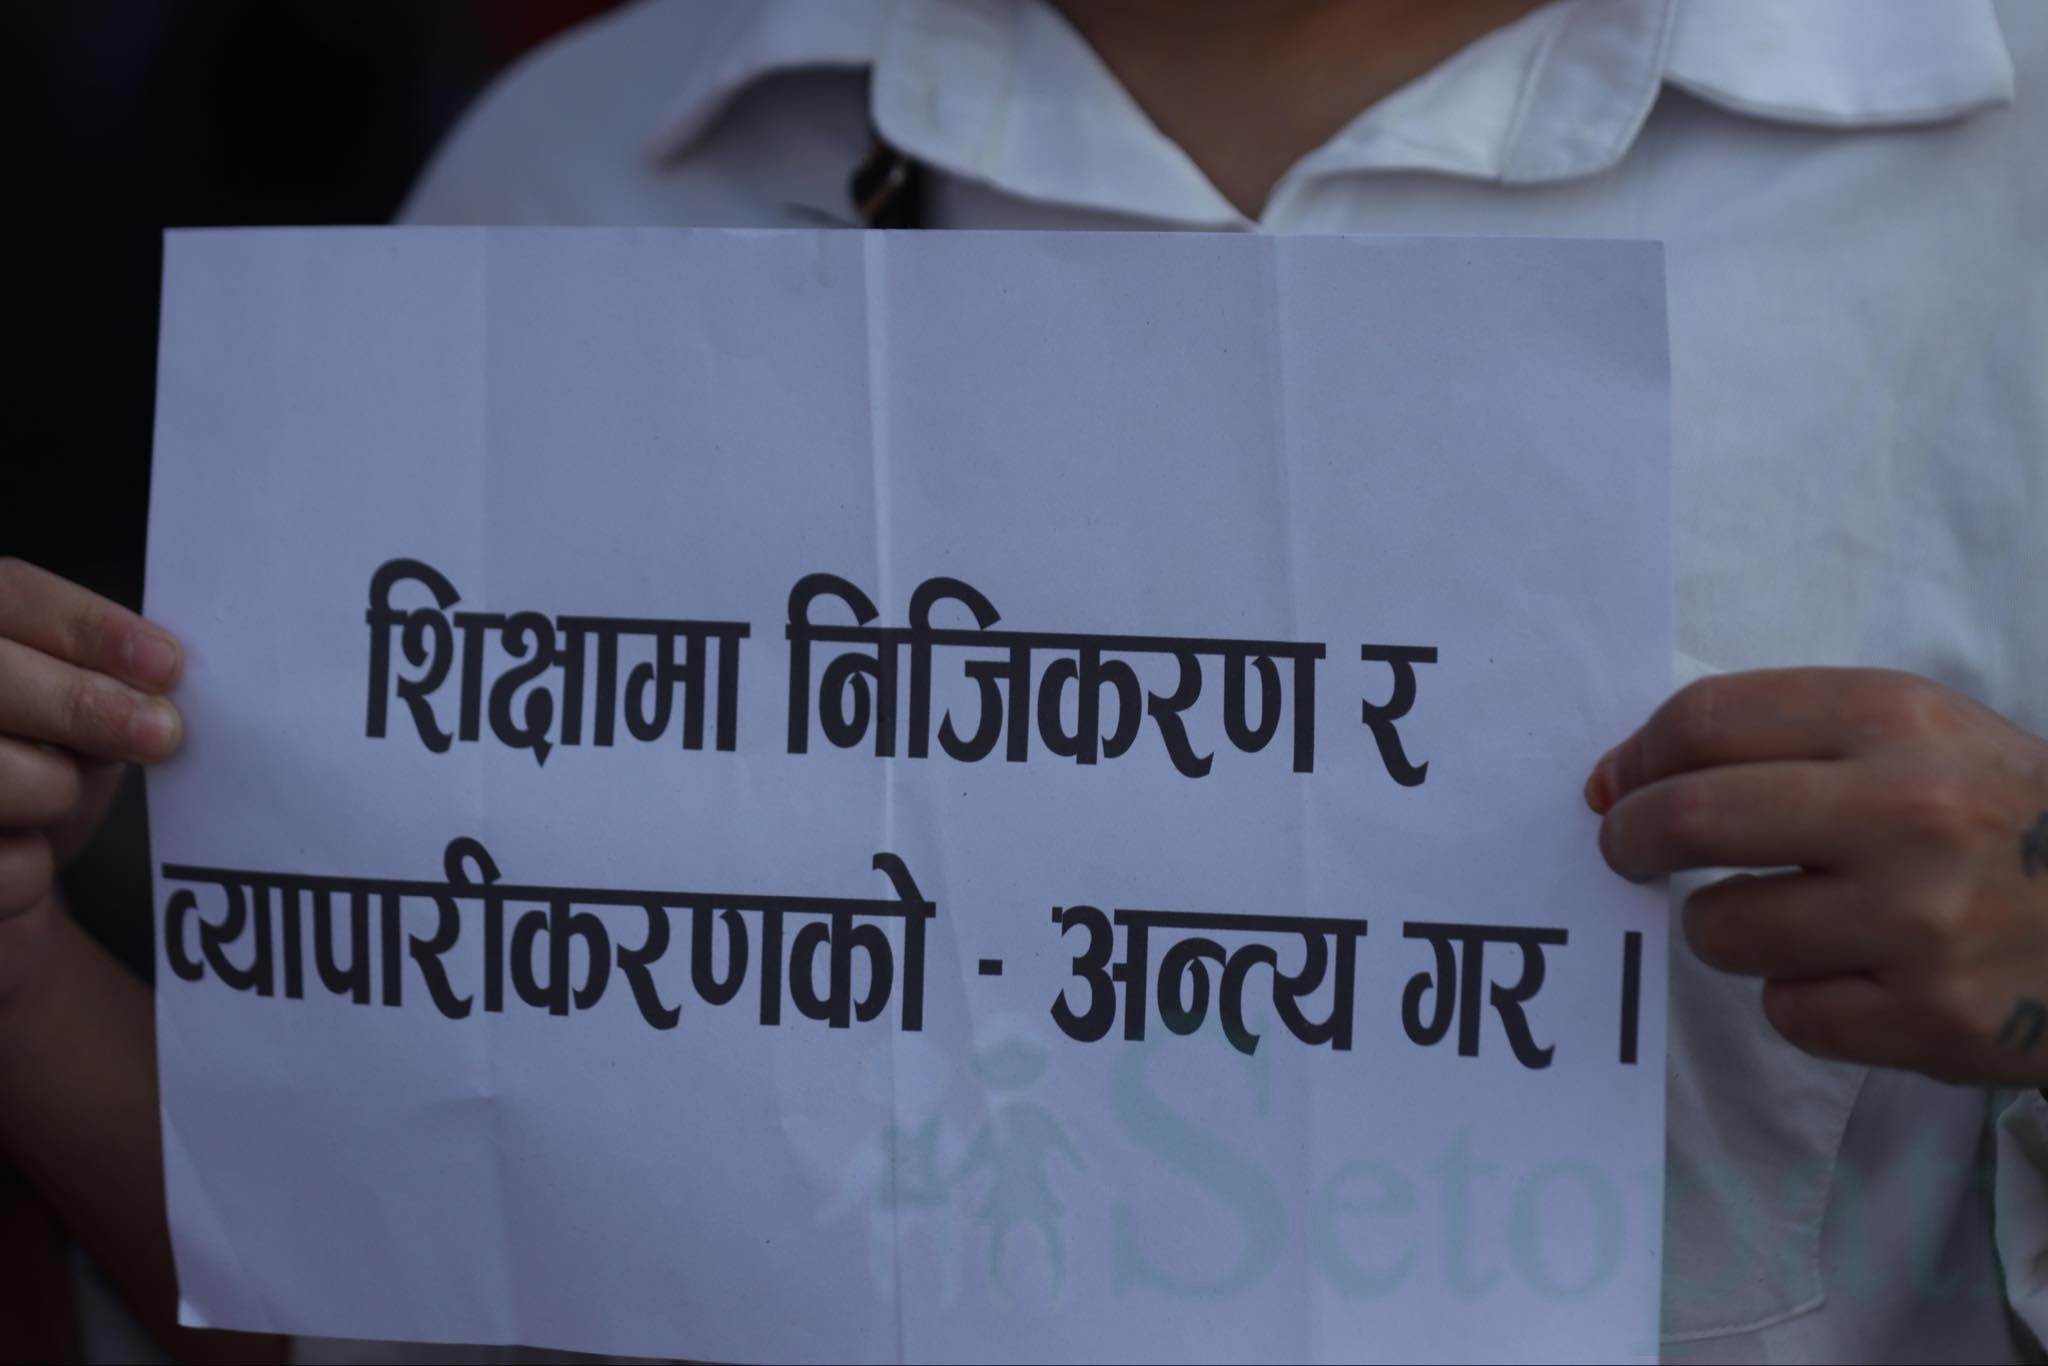 शिक्षामा निजिकरण र
व्यापारीकरणको - अन्त्य गर ।
Setopati